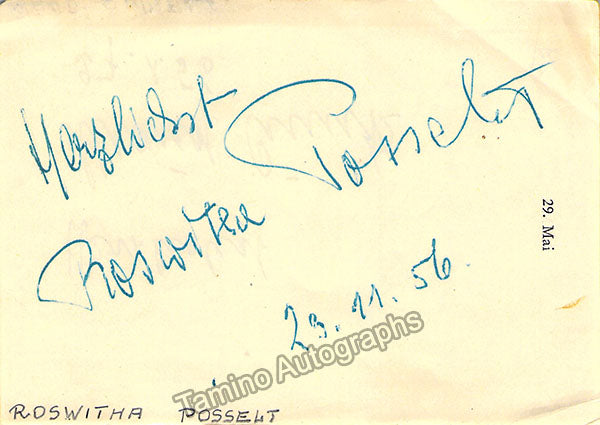 Herzlichst
Roswitha Posselt
29. Mai
23.11.56.
Tamino Autographs
ROSWITHA POSSELT